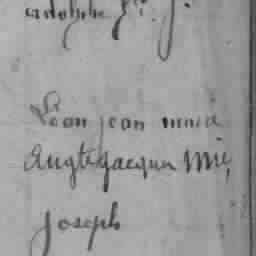 adolphe
Léon jean marie
Augte jacques Mie,
joseph